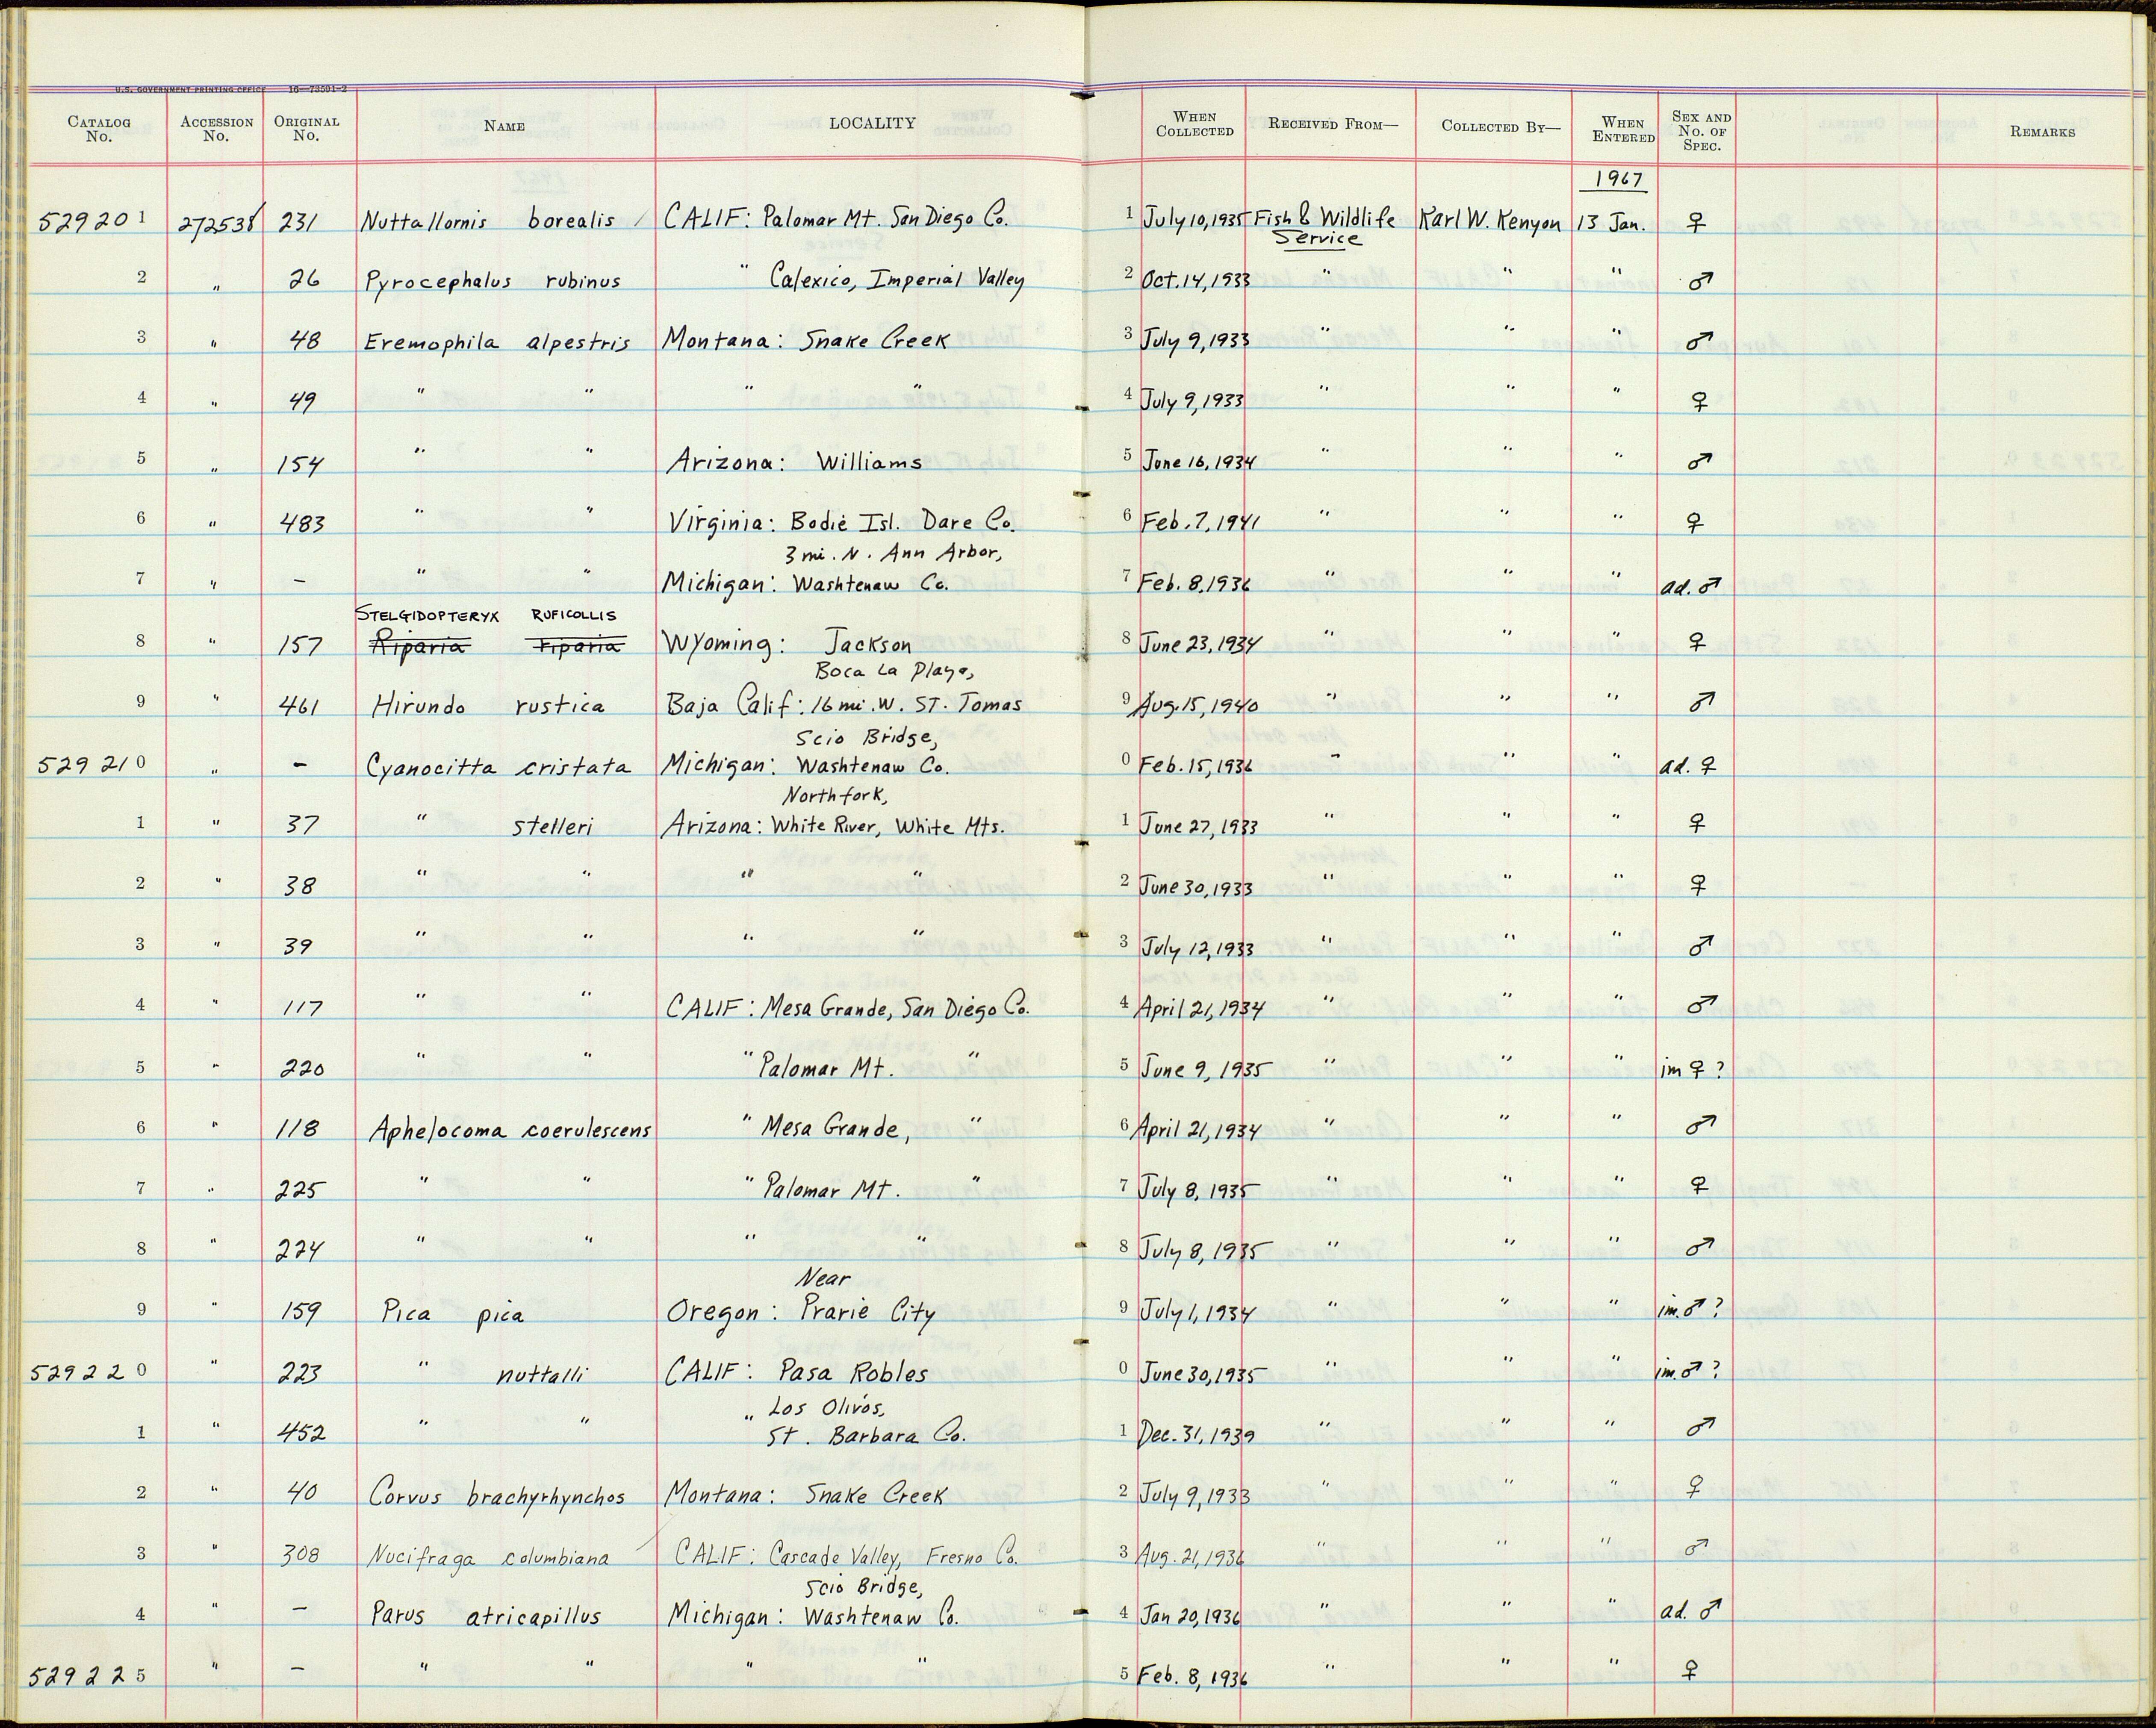 U.S. GOVERNMENT PRINTING OFFICE 16—73591-2
CATALOG No. ACCESSION No. ORIGINAL No. NAME LOCALITY WHEN COLLECTED RECEIVED FROM— COLLECTED BY— WHEN ENTERED SEX AND No. OF SPEC. REMARKS
1967
529201 272538 231 Nuttallornis borealis CALIF: Palomar Mt. San Diego Co. 1 July 10, 1935 Fish & Wildlife Service Karl W. Kenyon 13 Jan. ♀
2 " 26 Pyrocephalus rubinus " Calexico, Imperial Valley 2 Oct. 14, 1933 " " " ♂
3 " 48 Eremophila alpestris Montana: Snake Creek 3 July 9, 1933 " " " ♂
4 " 49 " " " " 4 July 9, 1933 " " " ♀
5 " 154 " " Arizona: Williams 5 June 16, 1934 " " " ♂
6 " 483 " " Virginia: Bodie Isl. Dare Co. 6 Feb. 7, 1941 " " " ♀
3 mi. N. Ann Arbor,
7 " — " " Michigan: Washtenaw Co. 7 Feb. 8, 1936 " " " ad. ♂
STELGIDOPTERYX RUFICOLLIS
8 " 157 Riparia riparia Wyoming: Jackson 8 June 23, 1934 " " " ♀
Boca La Playa,
9 " 461 Hirundo rustica Baja Calif: 16 mi. W. ST. Tomas 9 Aug. 15, 1940 " " " ♂
Scio Bridge,
529210 " — Cyanocitta cristata Michigan: Washtenaw Co. 0 Feb. 15, 1936 " " " ad. ♀
Northfork,
1 " 37 " stelleri Arizona: White River, White Mts. 1 June 27, 1933 " " " ♀
2 " 38 " " " " 2 June 30, 1933 " " " ♀
3 " 39 " " " " 3 July 12, 1933 " " " ♂
4 " 117 " " CALIF: Mesa Grande, San Diego Co. 4 April 21, 1934 " " " ♂
5 " 220 " " " Palomar Mt. " 5 June 9, 1935 " " " im ♀ ?
6 " 118 Aphelocoma coerulescens " Mesa Grande, " 6 April 21, 1934 " " " ♂
7 " 225 " " " Palomar Mt. " 7 July 8, 1935 " " " ♀
8 " 224 " " " " 8 July 8, 1935 " " " ♂
Near
9 " 159 Pica pica Oregon: Prarie City 9 July 1, 1934 " " " im. ♂ ?
529220 " 223 " nuttalli CALIF: Pasa Robles 0 June 30, 1935 " " " im. ♂ ?
" Los Olivos,
1 " 452 " " St. Barbara Co. 1 Dec. 31, 1939 " " " ♂
2 " 40 Corvus brachyrhynchos Montana: Snake Creek 2 July 9, 1933 " " " ♀
3 " 308 Nucifraga columbiana CALIF: Cascade Valley, Fresno Co. 3 Aug. 21, 1936 " " " ♂
Scio Bridge,
4 " — Parus atricapillus Michigan: Washtenaw Co. 4 Jan 20, 1936 " " " ad. ♂
529225 " — " " " " 5 Feb. 8, 1936 " " " ♀